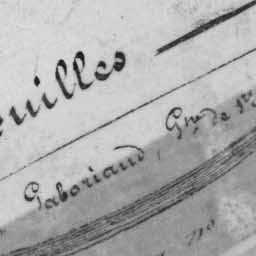 euilles
Gaboriaud, Gne de 1re
no